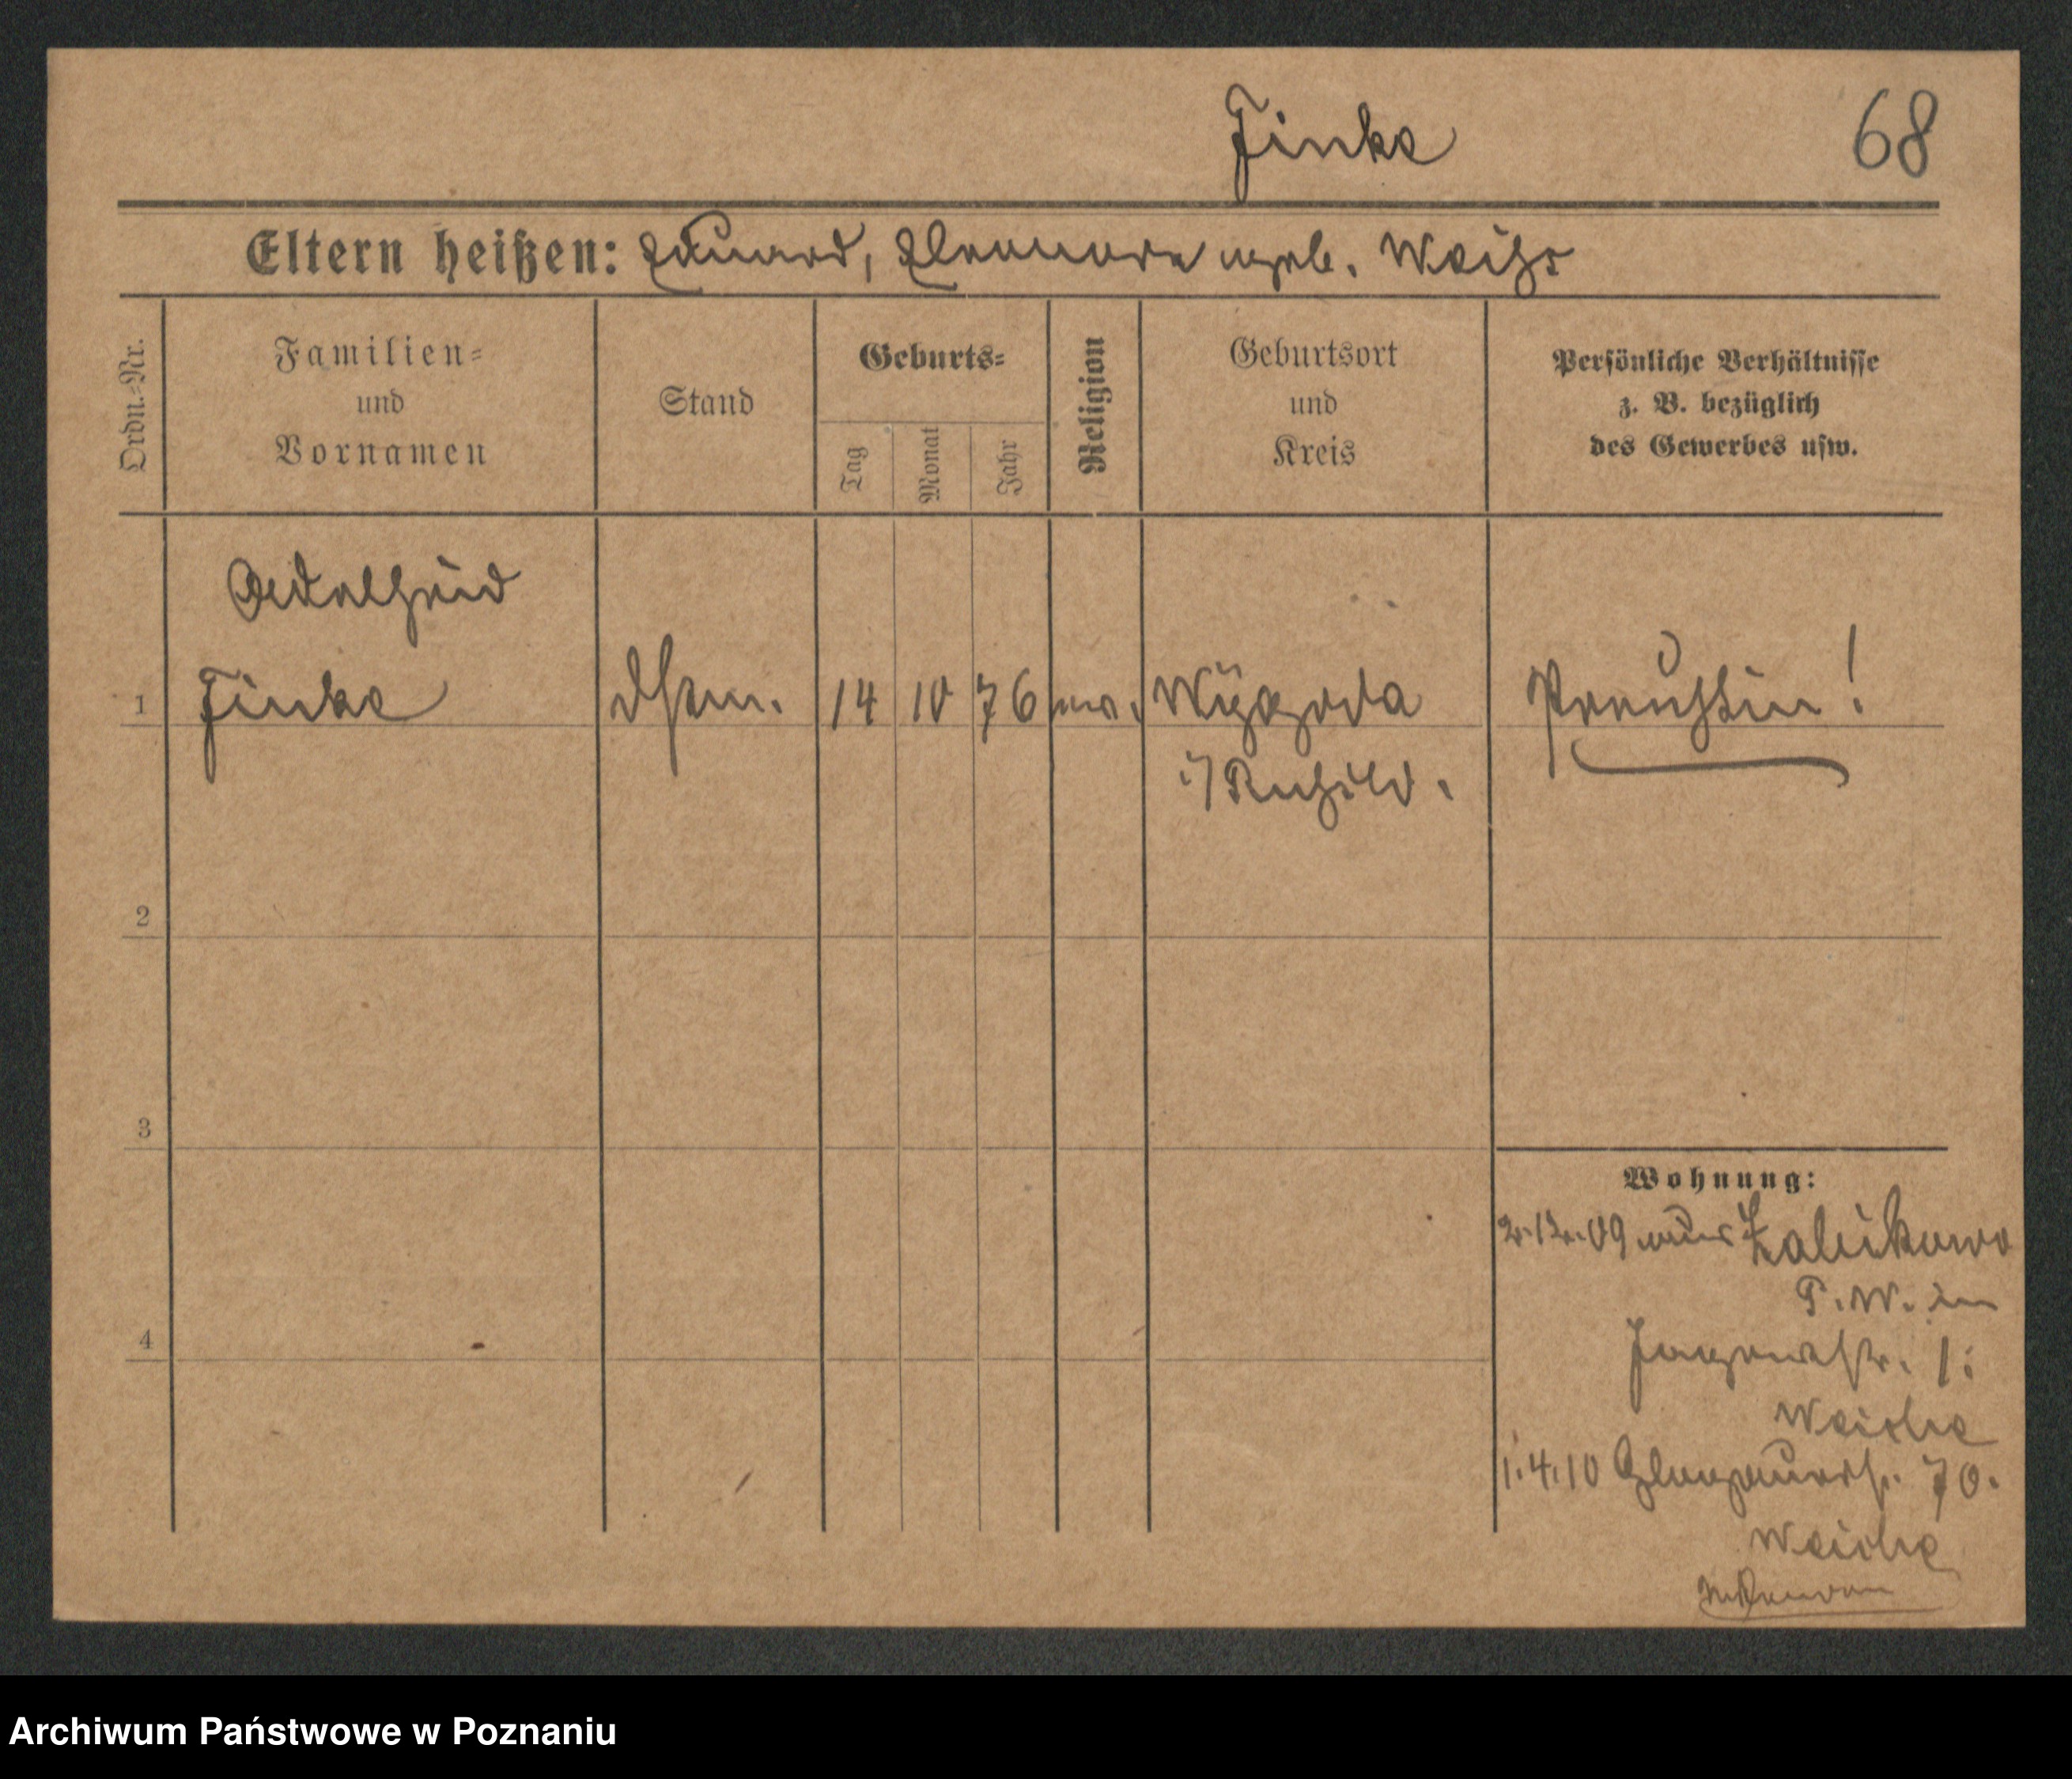 Finke
68
Eltern heißen: Eduard, Eleonore geb. Weiß
Ordn.-Nr.
Familien-
und
Vornamen
Stand
Geburts-
Tag
Monat
Jahr
Religion
Geburtsort
und
Kreis
Persönliche Verhältnisse
z. B. bezüglich
des Gewerbes usw.
Adelheid
1 Finke
14 10 76 ev. Wygoda
i/ Rußld.
Preußin!
2
3
4
Wohnung:
2.12.09 aus Zabikowo
P. W. in
str. 1.
Weiche
1.4.10 Glogauerstr. 70.
Weiche
Archiwum Państwowe w Poznaniu